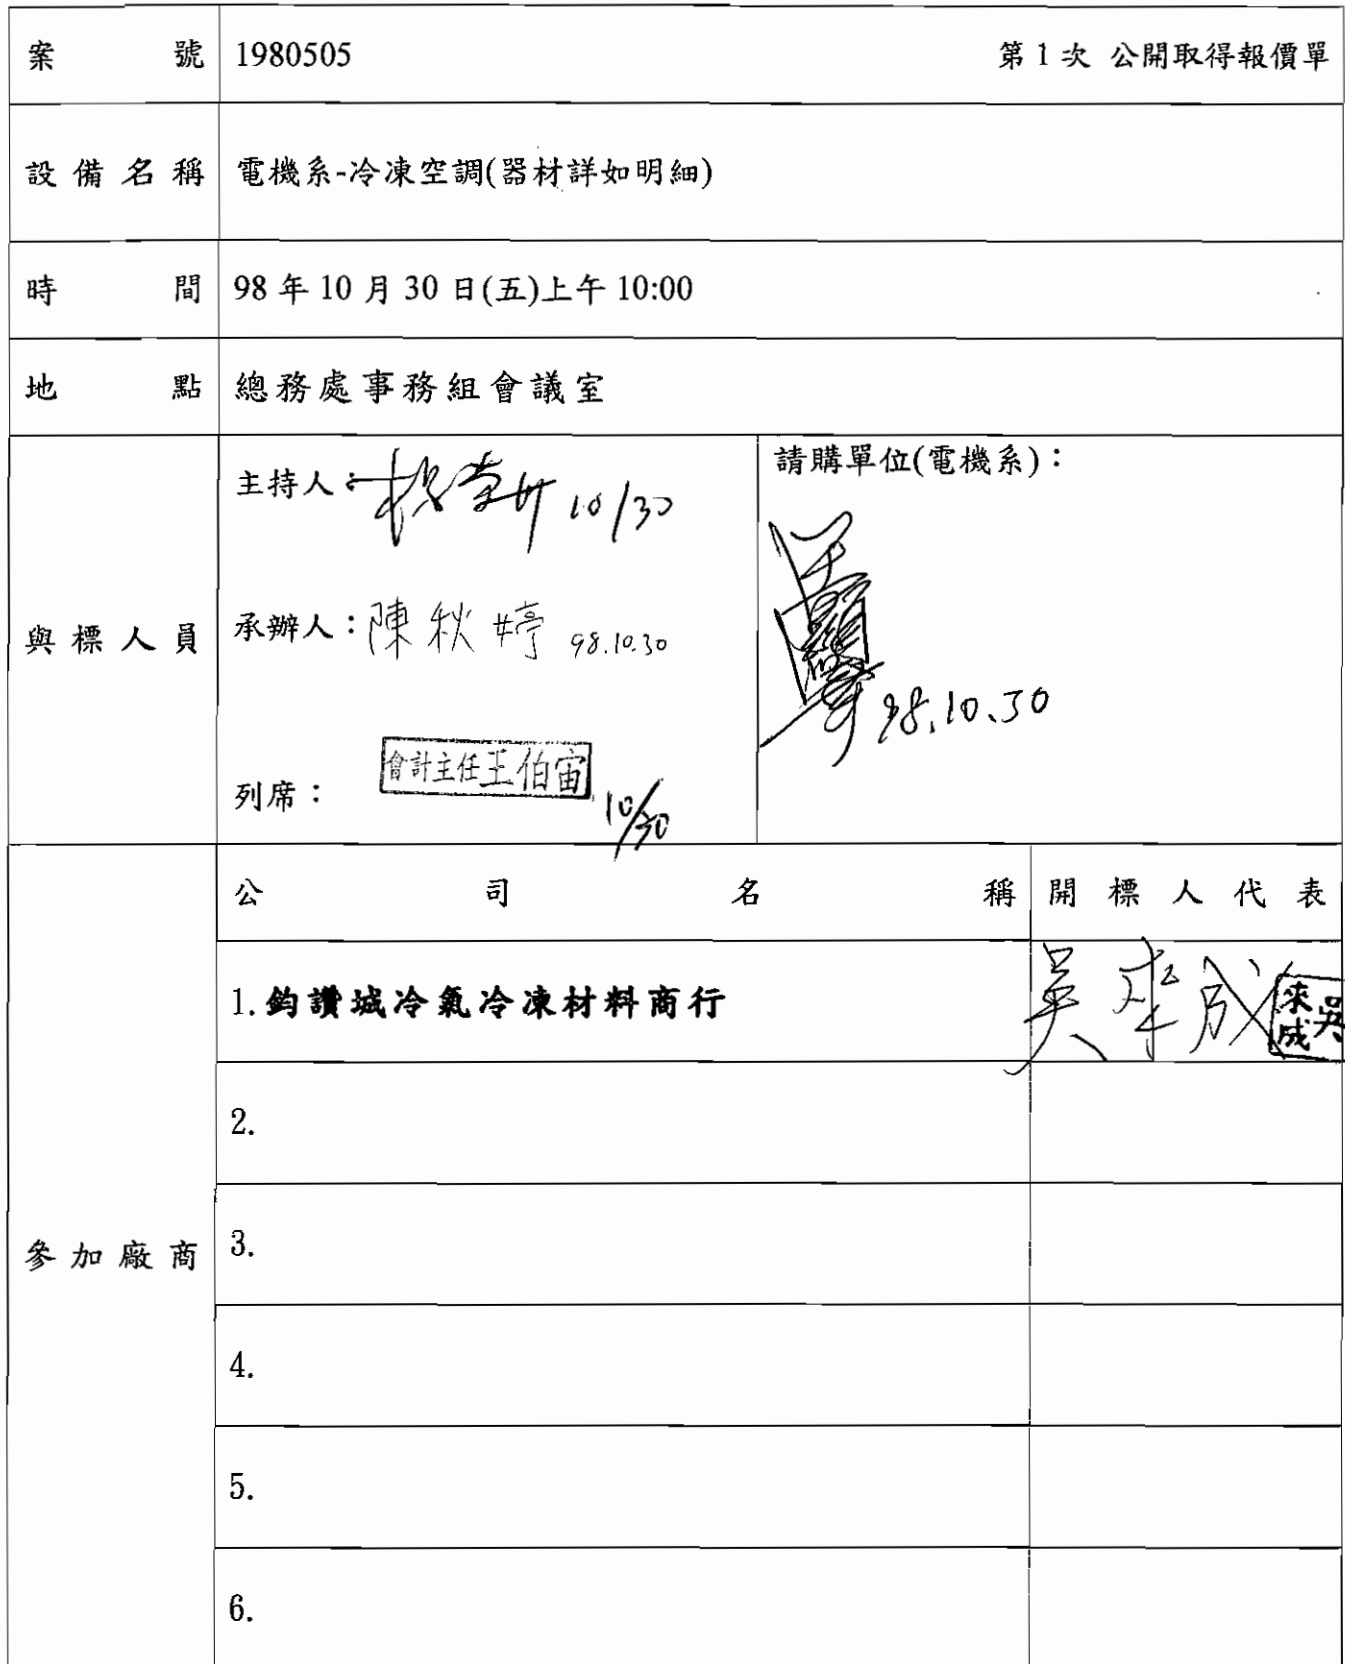 案號 1980505 第1次 公開取得報價單
設備名稱 電機系-冷凍空調(器材詳如明細)
時間 98年10月30日(五)上午10:00
地點 總務處事務組會議室
與標人員
主持人: 10/30
承辦人:陳秋婷 98.10.30
列席: 會計主任王伯宙 10/30
請購單位(電機系):
98.10.30
參加廠商
公司名稱 開標人代表
1.鈞讚城冷氣冷凍材料商行 吳來成 吳來成
2.
3.
4.
5.
6.